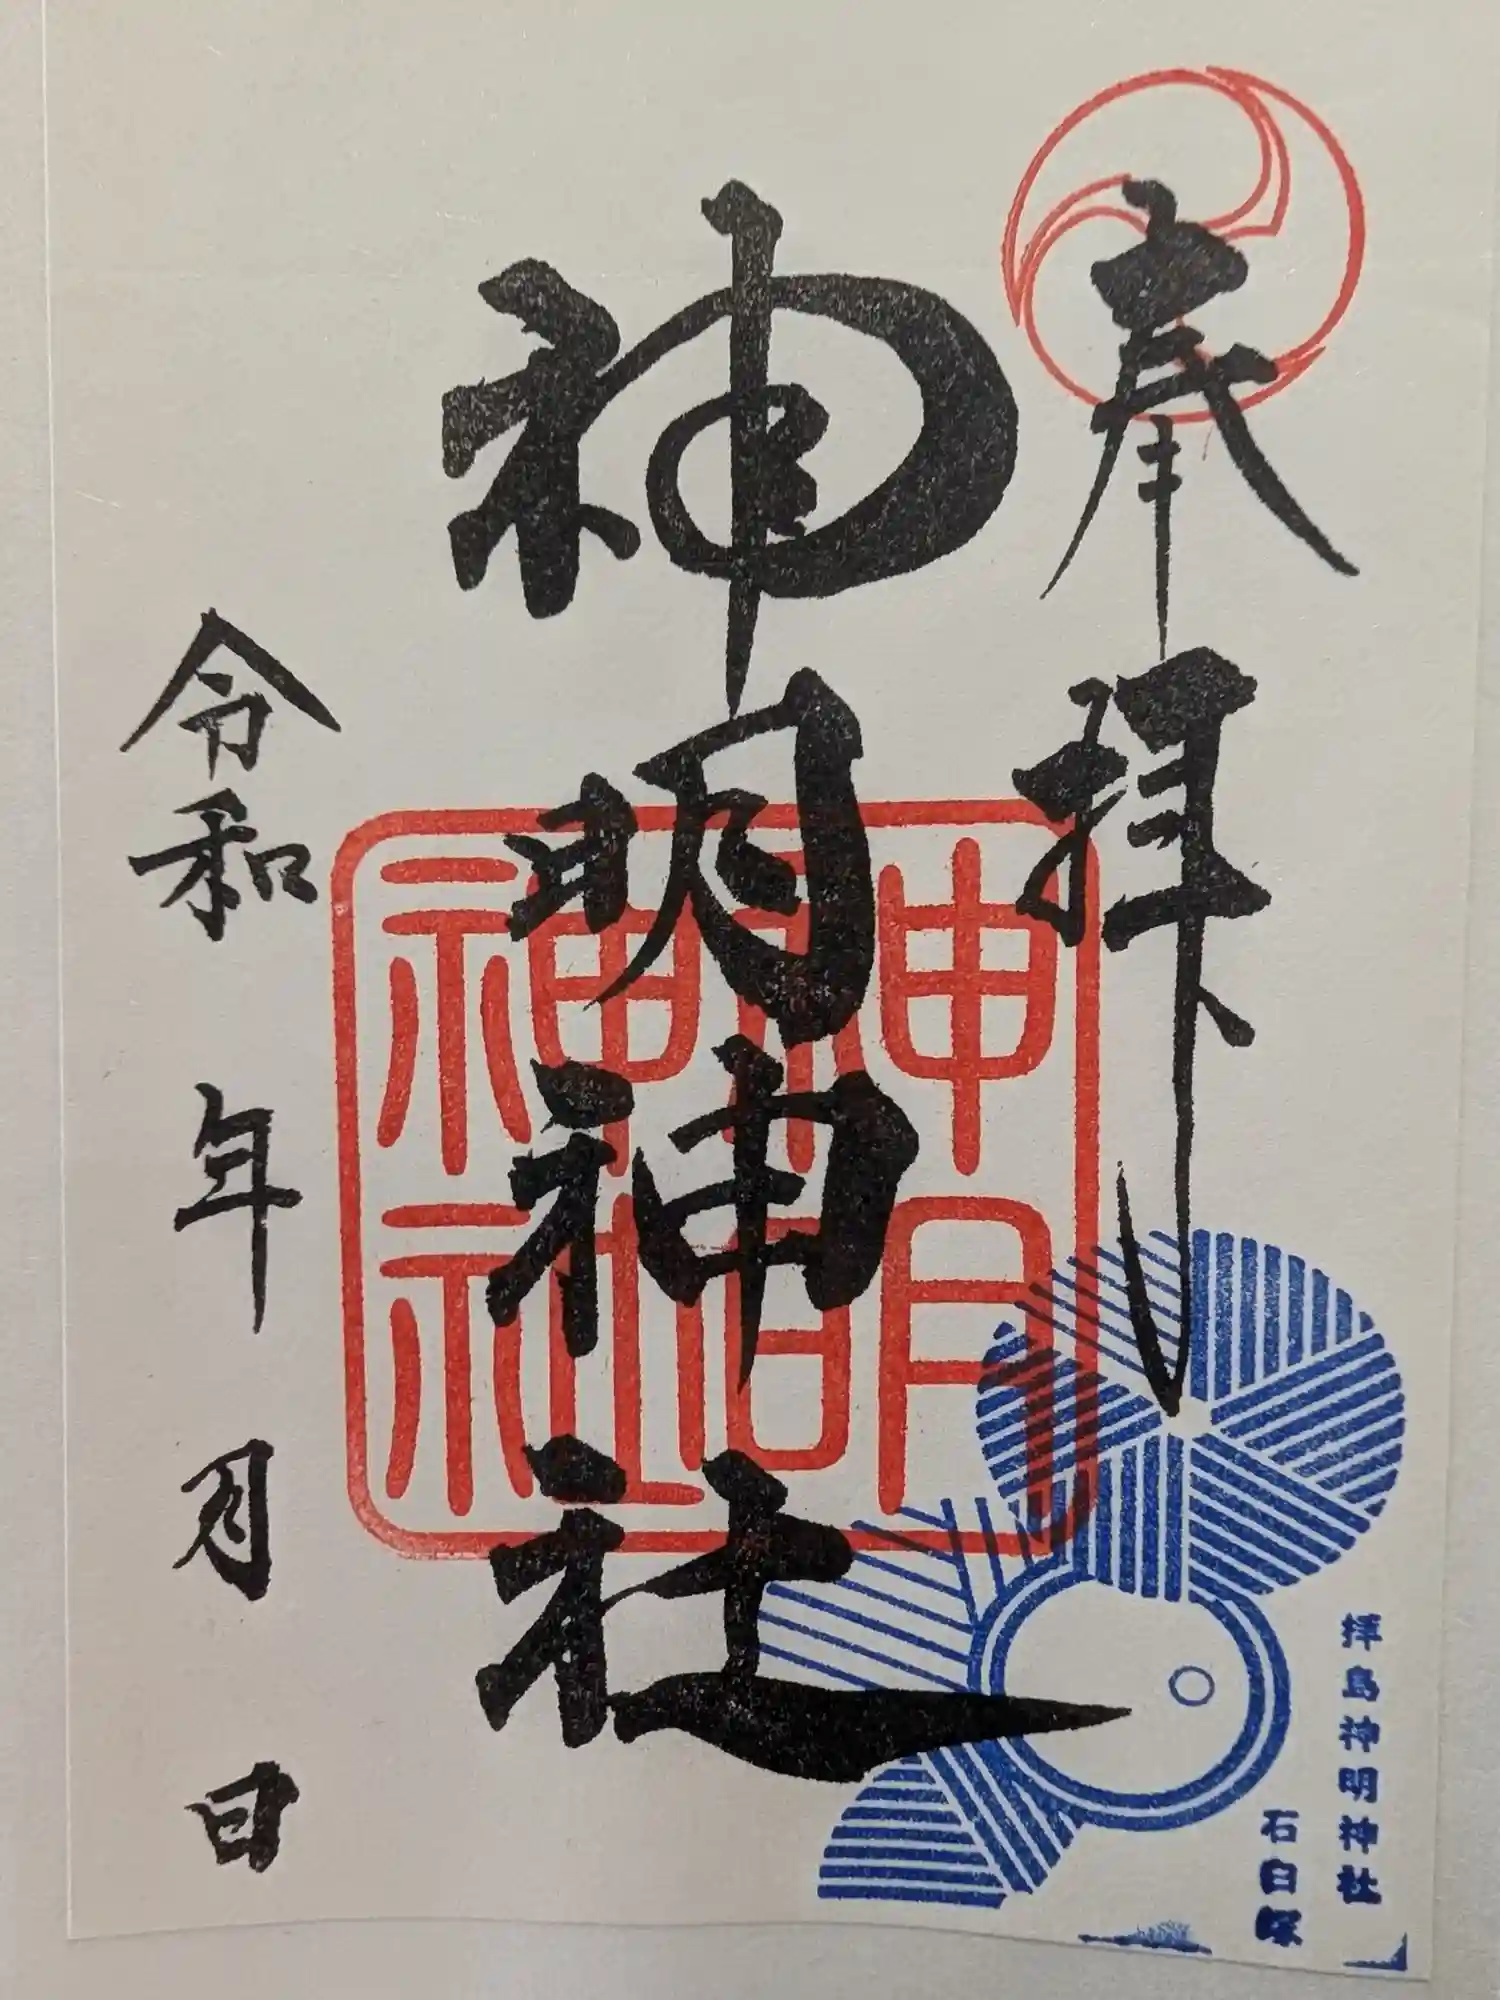 奉拝
神明神社
神明
神明
神社
神社
令和 年 月 日
拝島神明神社
石臼塚